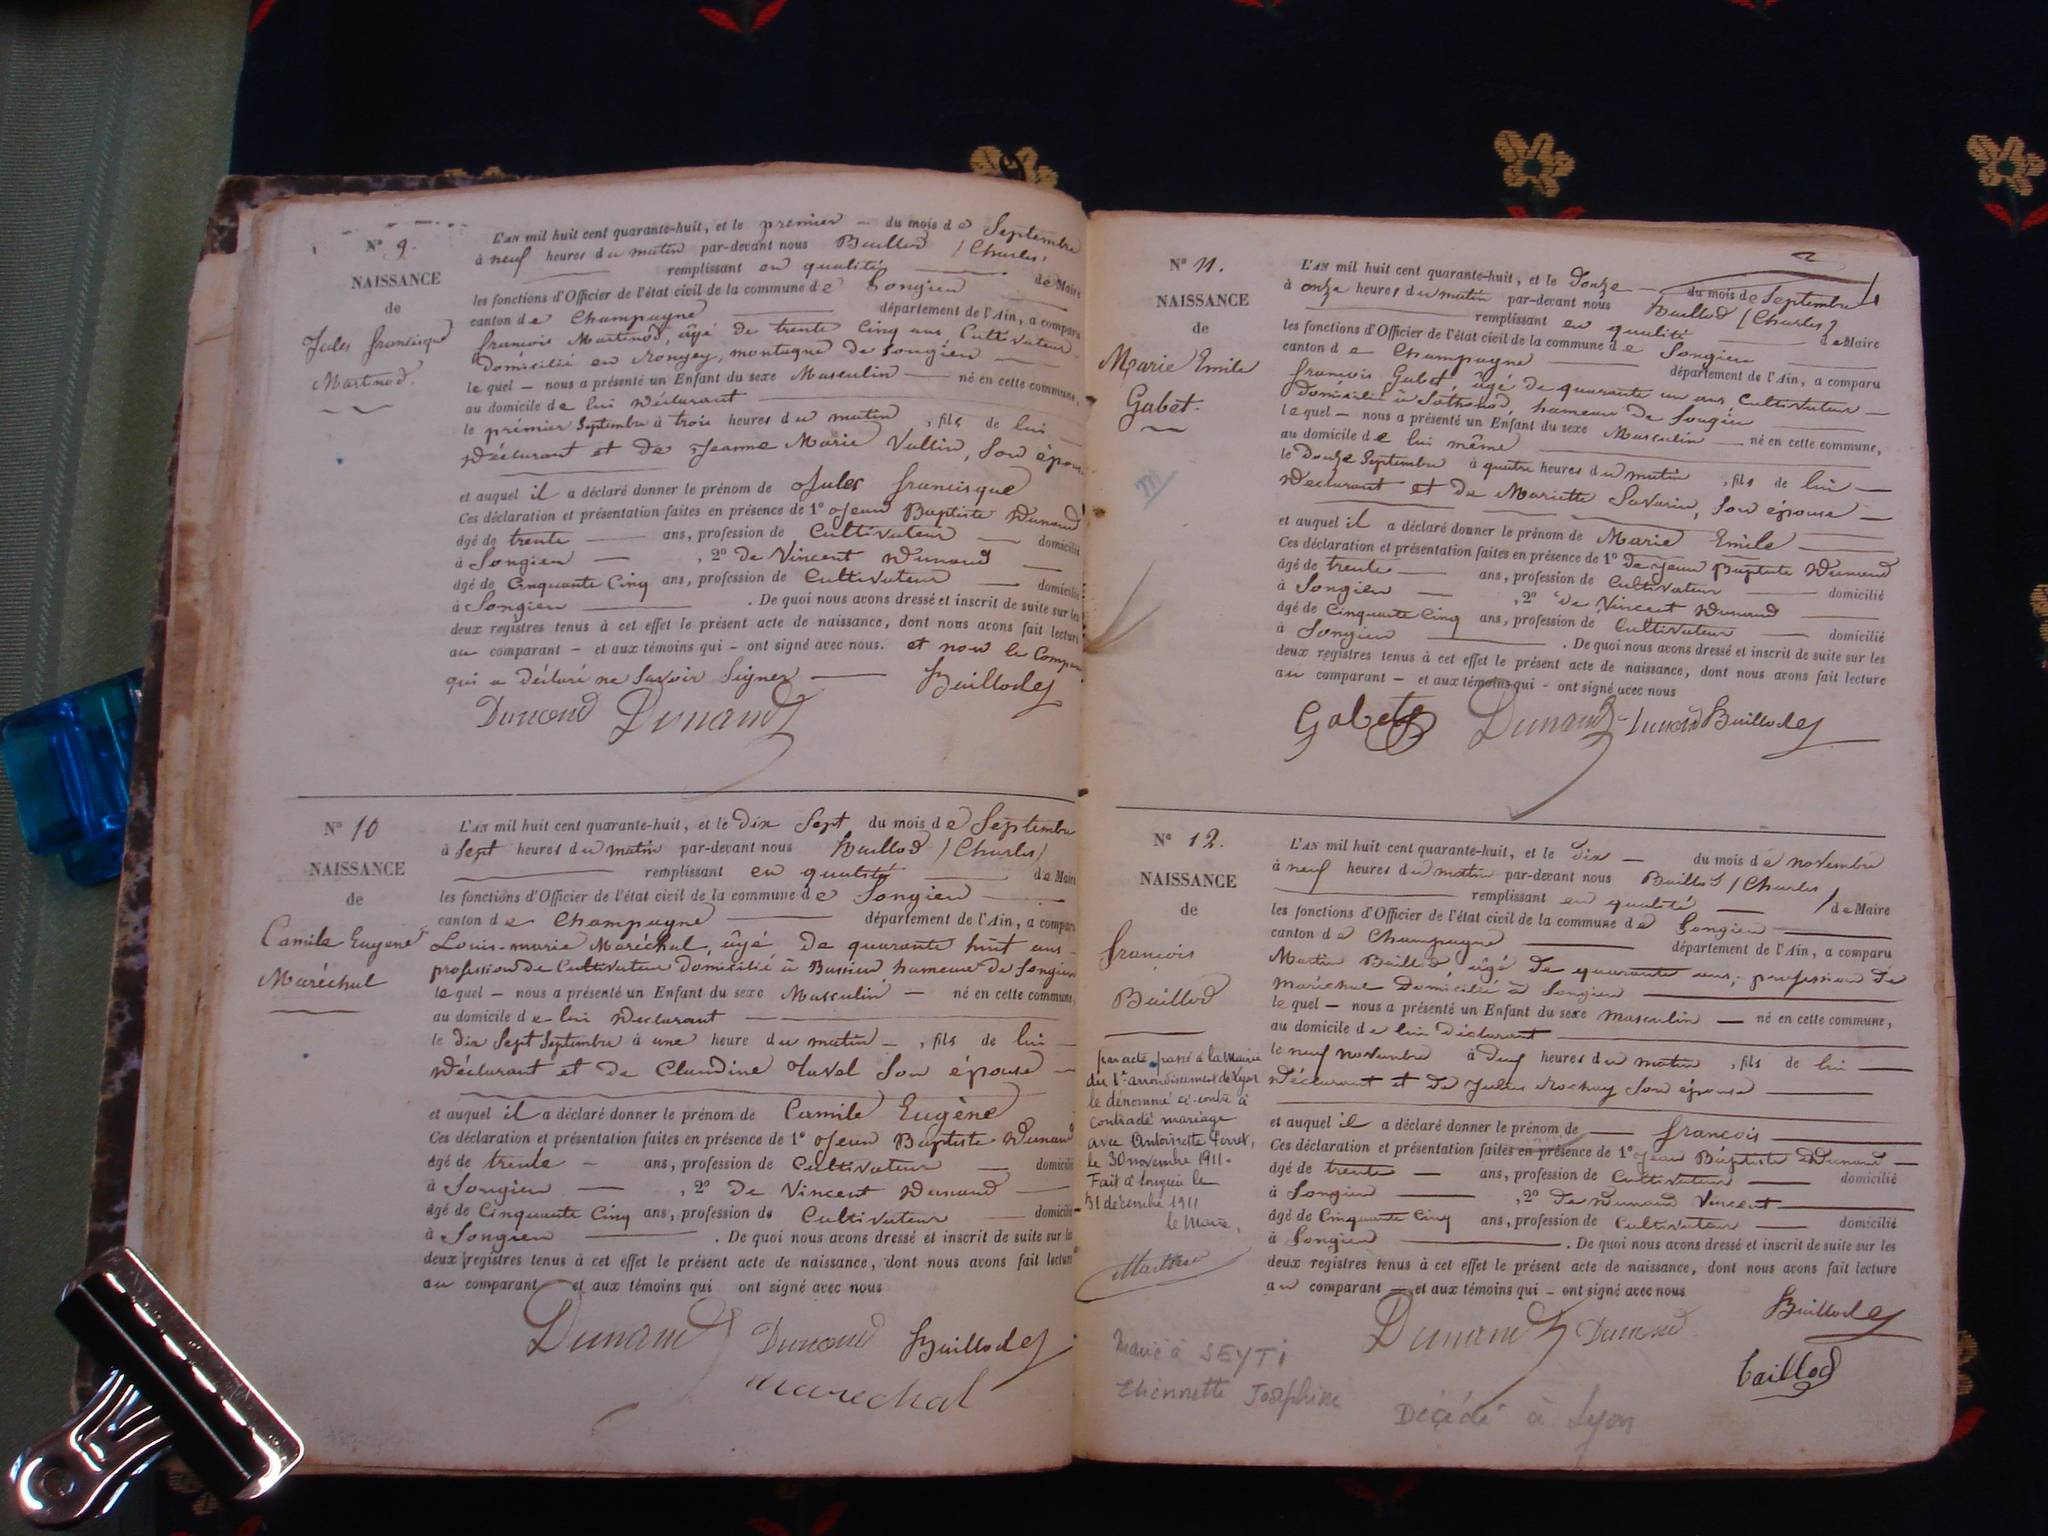 N° 9.
NAISSANCE
de
Jules francisque
Martinod.
L'AN mil huit cent quarante-huit, et le premier — du mois de Septembre
à neuf heures du matin par-devant nous Baillod (Charles)
remplissant en qualité de Maire
les fonctions d'Officier de l'état civil de la commune de Songieu
canton de Champagne département de l'Ain, a comparu
francois Martinod, âgé de trente Cinq ans Cultivateur
Domicilié en montagne de Songieu
lequel — nous a présenté un Enfant du sexe Masculin — né en cette commune,
au domicile de lui Déclarant
le prémier Septembre à trois heures du matin, fils de lui
Déclarant et de Jeanne Marie Vallin, Son épouse
et auquel il a déclaré donner le prénom de Jules francisque
Ces déclaration et présentation faites en présence de 1° Jean Baptiste Dunand
âgé de trente — ans, profession de Cultivateur — domicilié
à Songieu —, 2° de Vincent Dunand
âgé de Cinquante Cinq ans, profession de Cultivateur — domicilié
à Songieu — . De quoi nous avons dressé et inscrit de suite sur les
deux registres tenus à cet effet le présent acte de naissance, dont nous avons fait lecture
au comparant — et aux témoins qui — ont signé avec nous. et non le Compa
qui a déclaré ne Savoir Signer — Baillod
Dunand Dunand
N° 10
NAISSANCE
de
Camile Eugene
Maréchal
L'AN mil huit cent quarante-huit, et le dix Sept du mois de Septembre
à Sept heures du matin par-devant nous Baillod (Charles)
remplissant en qualité de Maire
les fonctions d'Officier de l'état civil de la commune de Songieu
canton de Champagne département de l'Ain, a comparu
Louis-marie Maréchal, âgé de quarante huit ans
profession de Cultivateur Domicilié à hameau de Songieu
lequel — nous a présenté un Enfant du sexe Masculin — né en cette commune,
au domicile de lui Déclarant
le dix Sept Septembre à une heure du matin —, fils de lui —
Déclarant et de Claudine Son épouse —
et auquel il a déclaré donner le prénom de Camile Eugène
Ces déclaration et présentation faites en présence de 1° Jean Baptiste Dunand
âgé de trente — ans, profession de Cultivateur — domicilié
à Songieu —, 2° de Vincent Dunand
âgé de Cinquante Cinq ans, profession de Cultivateur domicilié
à Songieu — . De quoi nous avons dressé et inscrit de suite sur les
deux registres tenus à cet effet le présent acte de naissance, dont nous avons fait lecture
au comparant et aux témoins qui ont signé avec nous
Dunand Dunand Baillod
Marechal
N° 11.
NAISSANCE
de
Marie Emile
Gabet.
M
L'AN mil huit cent quarante-huit, et le Douze — du mois de Septembre
à onze heures du matin par-devant nous Baillod (Charles)
remplissant en qualité de Maire
les fonctions d'Officier de l'état civil de la commune de Songieu
canton de Champagne département de l'Ain, a comparu
francois Gabet âgé de quarante un ans Cultivateur —
domicilié à Sothonod, hameau de Songieu
lequel — nous a présenté un Enfant du sexe Masculin — né en cette commune,
au domicile de lui même
le Douze Septembre à quatre heures du matin, fils de lui —
Déclarant et de Mariette Savarin, Son épouse —
et auquel il a déclaré donner le prénom de Marie Emile
Ces déclaration et présentation faites en présence de 1° De Jean Baptiste Dunand
âgé de trente — ans, profession de Cultivateur — domicilié
à Songieu —, 2° de Vincent Dunand
âgé de Cinquante Cinq ans, profession de Cultivateur — domicilié
à Songieu — . De quoi nous avons dressé et inscrit de suite sur les
deux registres tenus à cet effet le présent acte de naissance, dont nous avons fait lecture
au comparant — et aux témoins qui — ont signé avec nous
Gabet Dunand Dunand Baillod
N° 12.
NAISSANCE
de
françois
Baillod
par acte passé à la Mairie
du 1er arrondissement de Lyon
le dénommé ci-contre à
contracté mariage
avec Antoinette Perret,
le 30 novembre 1911.
Fait à Songieu le
31 décembre 1911
le Maire,
Marié à SEYTI
Etiennette Joséphine
L'AN mil huit cent quarante-huit, et le dix — du mois de novembre
à neuf heures du matin par-devant nous Baillod (Charles)
remplissant en qualité — de Maire
les fonctions d'Officier de l'état civil de la commune de Songieu
canton de Champagne département de l'Ain, a comparu
Martin Baillod âgé de quarante ans, profession de
maréchal Domicilié à Songieu
lequel — nous a présenté un Enfant du sexe masculin — né en cette commune,
au domicile de lui Déclarant
le neuf novembre à heures du matin, fils de lui —
Déclarant et de Julie Son épouse
et auquel il a déclaré donner le prénom de — francois
Ces déclaration et présentation faites en présence de 1° Jean Baptiste Dunand —
âgé de trente — ans, profession de Cultivateur — domicilié
à Songieu —, 2° de Dunand Vincent
âgé de Cinquante Cinq ans, profession de Cultivateur — domicilié
à Songieu — . De quoi nous avons dressé et inscrit de suite sur les
deux registres tenus à cet effet le présent acte de naissance, dont nous avons fait lecture
au comparant — et aux témoins qui — ont signé avec nous
Dunand Dunand Baillod
baillod
Décédé à Lyon